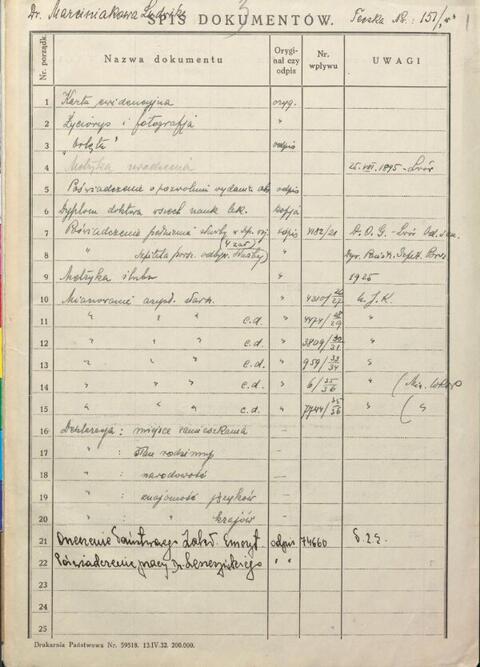 Dr. Marciniakowa Ludwika
SPIS DOKUMENTÓW. Teczka Nr. 151/
Nr. porządk. Nazwa dokumentu Orygi- nał czy odpis Nr. wpływu UWAGI
1 Karta ewidencyjna oryg.
2 Życiorys i fotografja "
3 odpis
4 Metryka urodzenia 25.VII.1895 - Lwów
5 Poświadczenie o pozwoleniu wydania odpis
6 Dyplom doktora wszech nauk lek. kopja
7 Poświadczenie pełnienia służby odpis 4182/21 Dr. O. G. - Lwów
8 " Szpitala odbyw. służby "
9 Metryka ślubu " 1925
10 Mianowanie asyst. " U. J. K.
11 " " " c.d. " 4474/ "
12 " " " c.d. " 3809/ "
13 " " " c.d. " 959/ 33/34 "
14 " " " c.d. " 6/ 35/36 "
15 " " " c.d. " 7744/ 35/36 " "
16 Deklaracja : miejsce zamieszkania —
17 " : stan rodzinny —
18 " : narodowość —
19 " : znajomość języków
20 " : krajów —
21 Orzeczenie Państwowego Zakł. Emeryt. odpis 74660
22 Poświadczenie pracy Dr. Leszczyńskiego " "
23
24
25
Drukarnia Państwowa Nr. 59518. 13.IV.32. 200.000.